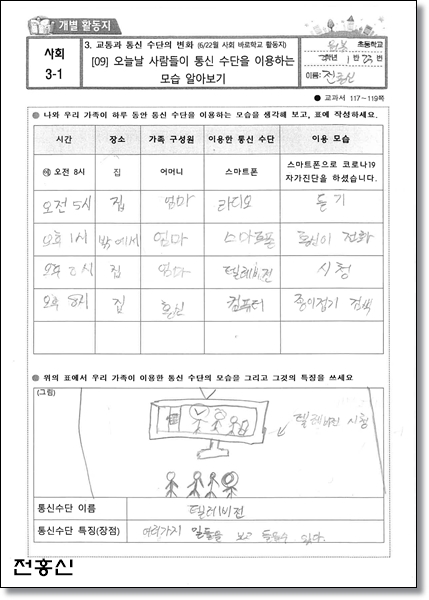 개별 활동지
사회
3-1
3. 교통과 통신 수단의 변화 (6/22월 사회 바로학교 활동지)
[09] 오늘날 사람들이 통신 수단을 이용하는
모습 알아보기
초등학교
3학년 1 반 번
이름: 전홍신
● 교과서 117~119쪽
● 나와 우리 가족이 하루 동안 통신 수단을 이용하는 모습을 생각해 보고, 표에 작성하세요.
시간 장소 가족 구성원 이용한 통신 수단 이용 모습
예 오전 8시 집 어머니 스마트폰 스마트폰으로 코로나19
자가진단을 하셨습니다.
오전 5시 집 엄마 라디오 듣기
오후 1시 밖에서 엄마 스마트폰 홍신이 전화
오후 2시 집 엄마 텔레비전 시청
오후 8시 집 홍신 컴퓨터 종이접기 검색
● 위의 표에서 우리 가족이 이용한 통신 수단의 모습을 그리고 그것의 특징을 쓰세요
(그림)
텔레비전 시청
통신수단 이름 텔레비전
통신수단 특징(장점) 여러가지 일들을 보고 들을수 있다.
전홍신